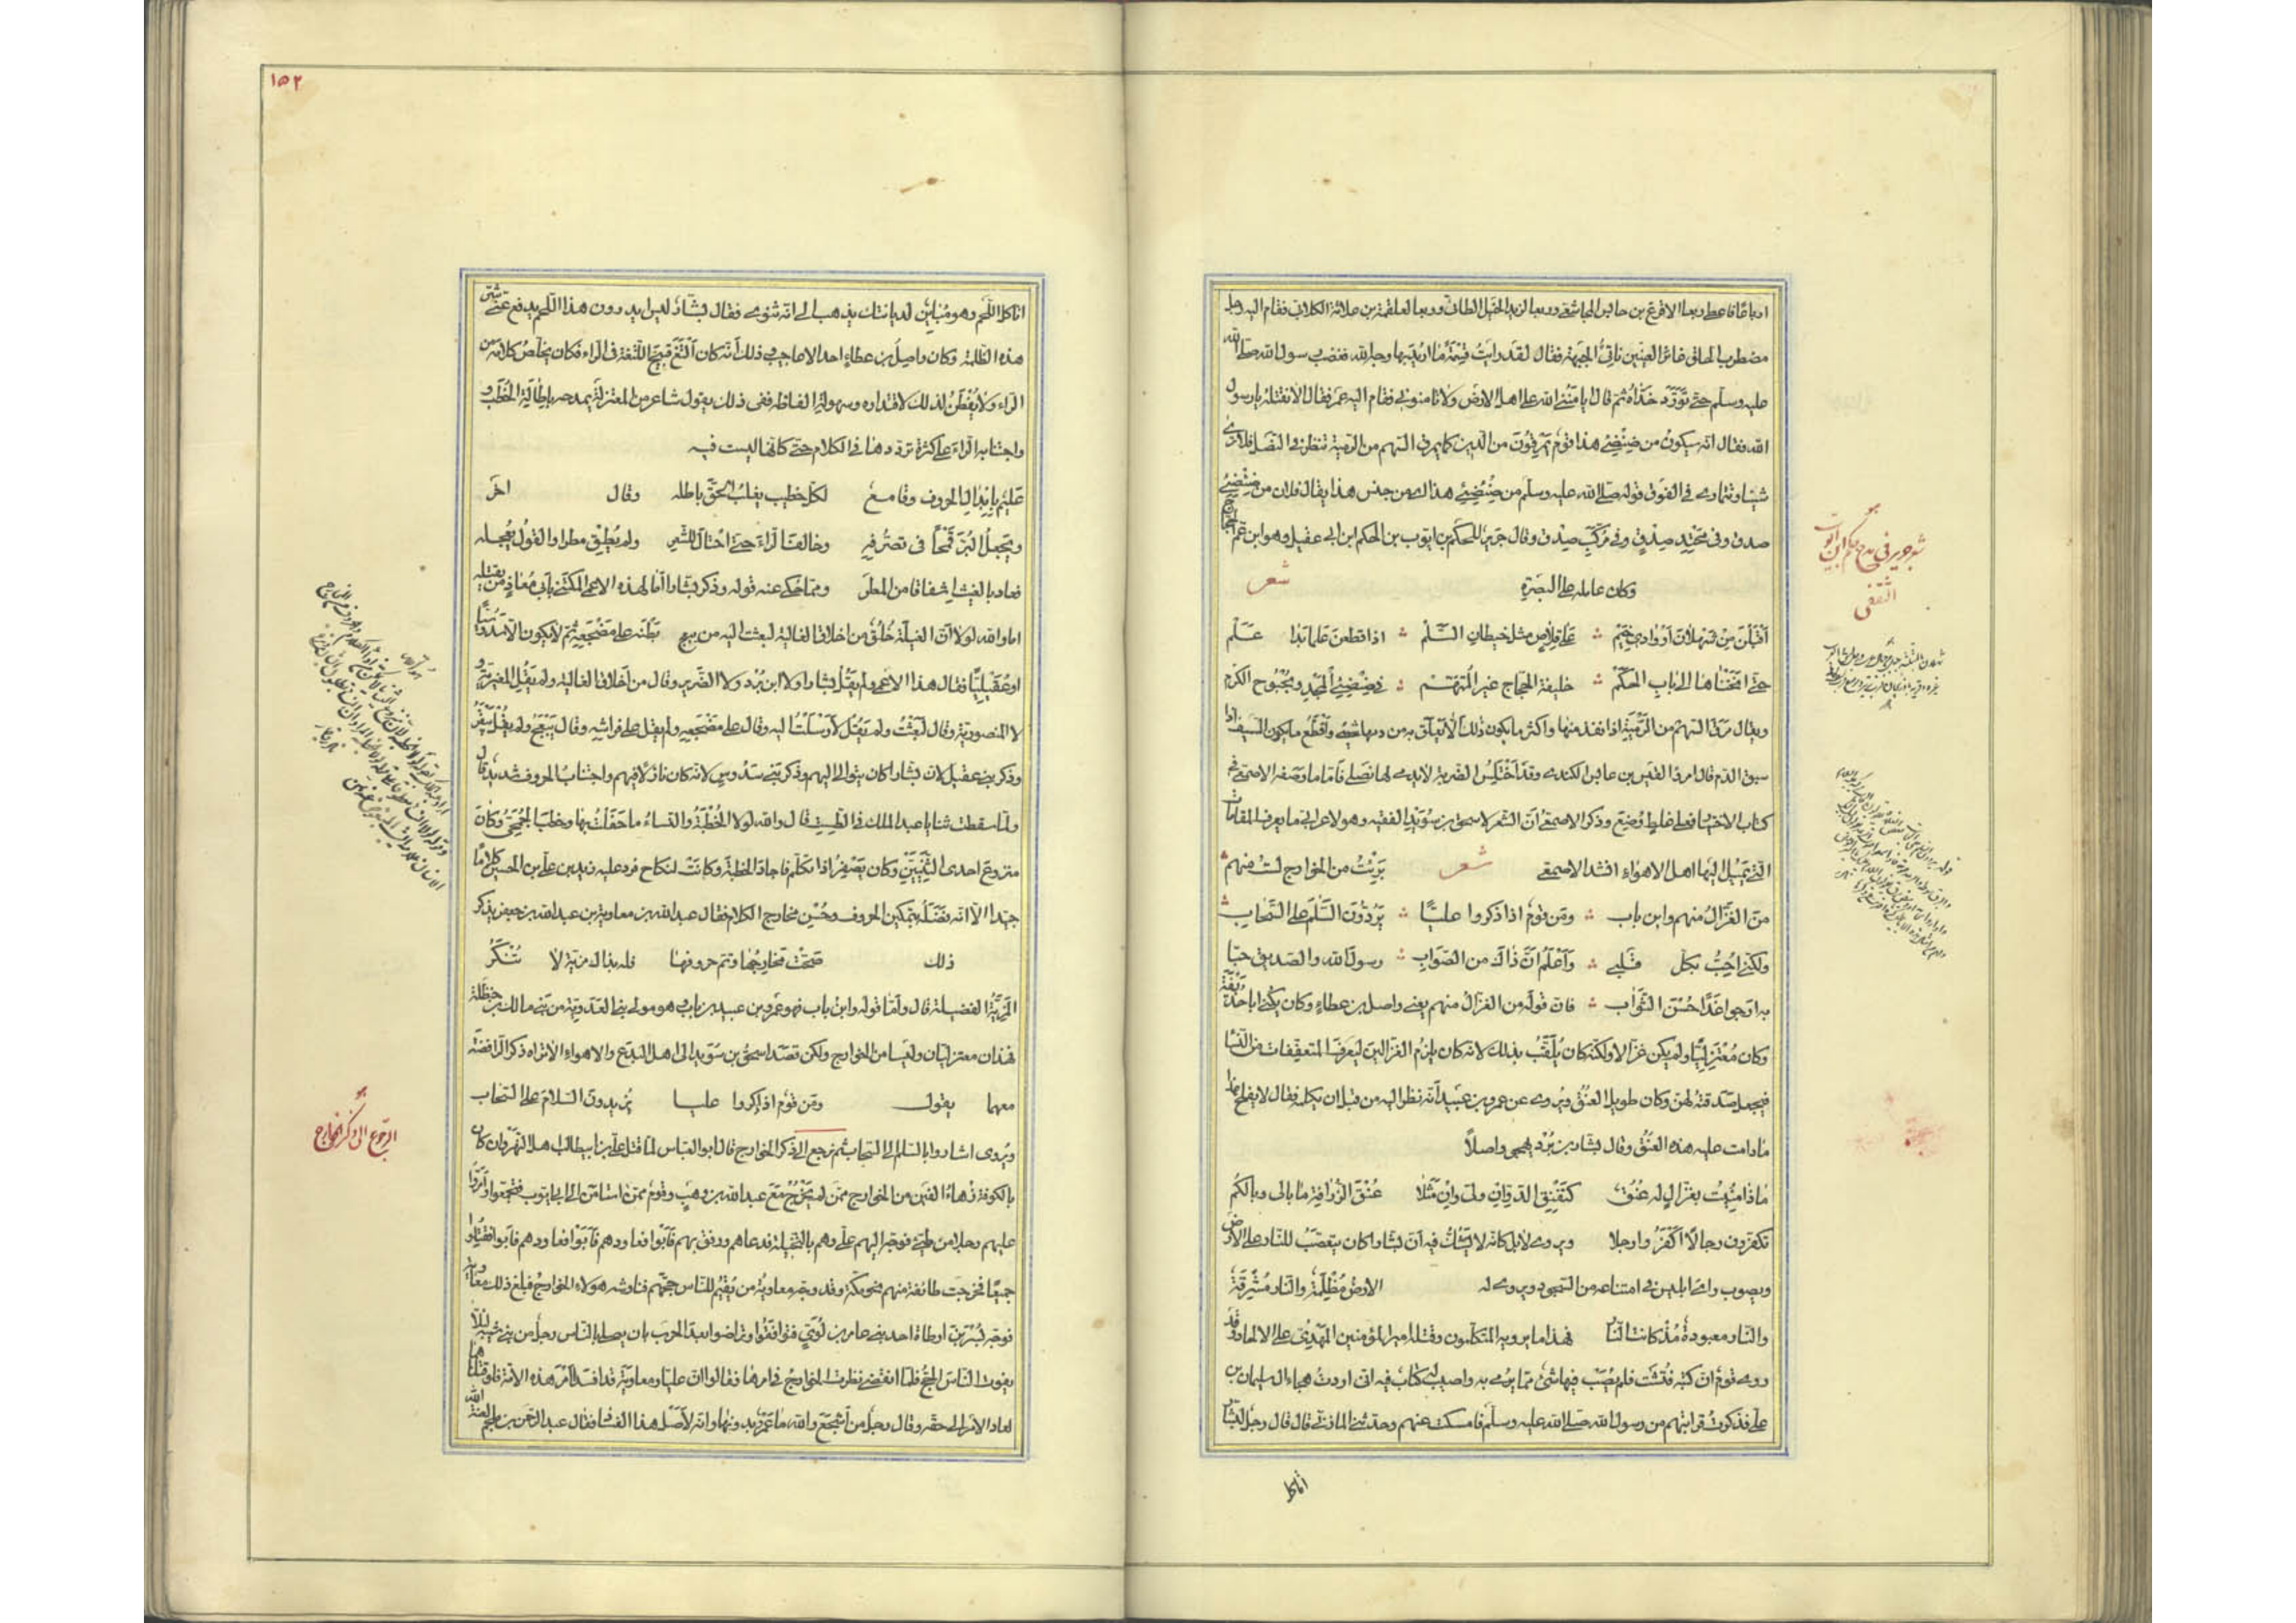 ارباعًا فاعطى ربعا الاقرع بن حابس المجاشعي وربعا لزيد الخيل الطائي وربعا لعلقمة بن علاثة الكلابي فقام اليه رجل
مضطرب الخلق غائر العينين ناتئ الجبهة فقال لقد رايت قسمة ما اريد بها وجه الله فغضب رسول الله صلى الله
عليه وسلم حتى تورّد خدّاه ثم قال ايأمنني الله على اهل الارض ولا تامنوني فقام اليه عمر فقال الا نقتله يا رسول
الله فقال انه سيكون من ضئضئ هذا قوم يمرقون من الدين كما يمرق السهم من الرمية تنظر في النصل فلا ترى
شيئا وتتمارى في الفوق قوله صلى الله عليه وسلم من ضئضئ هذا اى من جنس هذا يقال فلان من ضئضئ
صدق وفي محتد صدق وفي مركّب صدق وقال جرير للحكم بن ايوب بن الحكم ابن ابي عقيل وهو ابن عم الحجاج
وكان عامله على البصرة شعر
اقبلن من ثهلان او وادي خيم ؞ على قلاص مثل خيطان السّلم ؞ اذا قطعن علما بدا علم
حتى انخناها الى باب الحكم ؞ خليفة الحجاج غير المتّهم ؞ في ضئضئ المجد وبحبوح الكرم
ويقال مرق السهم من الرمية اذا نفذ منها واكثر ما يكون ذلك الّا يعلق به من دمها شئ واقطع ما يكون السيف اذا
سبق الدم قال امرؤ القيس بن عابس الكندى وقد اختلس الضربة لا يدمى لها نصلى فامّا ما وصفه الاصمعي في
كتاب الاختيار فعلى غلط وضع وذكر الاصمعي انّ الشعر لاسحق بن سويد الفقيه وهو لاعرابي ما يعرف المقالات
التي يميل اليها اهل الاهواء انشد الاصمعي شعر برئت من الخوارج لست منهم ؞
من الغزّال منهم وابن باب ؞ ومن قوم اذا ذكروا عليًّا ؞ يردّون السّلم على السّحاب ؞
ولكنّي احبّ بكل قلبي ؞ واعلم انّ ذاك من الصّواب ؞ رسول الله والصديق حبّا
به ارجو غدًا حسن الثّواب ؞ فان قوله من الغزال منهم يعني واصل بن عطاء وكان يكنى ابا حذيفة
وكان معتزليًّا ولم يكن غزالا ولكنه كان يلقّب بذلك لانه كان يلزم الغزالين ليعرف المتعففات من النسا
فيجعل صدقته لهن وكان طويل العنق ويروى عن عمرو بن عبيد انّه نظر اليه من قبل ان يكلمه فقال لا يفلح هذا
ما دامت عليه هذه العنق وقال بشار بن برد يهجو واصلًا
ماذا منيت بغزال له عنق كنقنق الدّوّ ان ولّى وان مثلا عنق الزرافة ما بالى وبالكم
تكفرون رجالًا اكفروا رجلا ويروى لا بل كانه لا يشكّ فيه ان بشارا كان يتعصّب للنار على الارض
ويصوب راى ابليس في امتناعه من السجود ويروى له الارض مظلمة والنار مشرقة
والنار معبودة مذ كانت النار فهذا ما يرويه المتكلمون وقتله امير المؤمنين المهدي على الالحاد وقد
روى قوم ان كتبه فتّشت فلم يصب فيها شئ مما يرمى به واصيب له كتاب فيه اني اردت هجاء ال سليمان بن
على فذكرت قرابتهم من رسول الله صلى الله عليه وسلم فامسكت عنهم وحدثني المازني قال قال رجل لبشار
شعر جرير في مدح حكم ابن ايوب
الثقفي
١٥٢
اتاكل اللحم وهو مباين لديانتك يذهب الى انه ثنوى فقال بشار ليس يدرون هذا اللحم يدفع عني شر
هذه الظلمة وكان واصل بن عطاء احد الاعاجيب وذلك انه كان الثغ قبيح اللثغة في الراء فكان يخلّص كلامه من
الراء ولا يفطن لذلك لاقتداره وسهولة الفاظه ففي ذلك يقول شاعر من المعتزلة يمدحه باطالة الخطب و
واجتنابه الراء على كثرة تردّدها في الكلام حتى كانها ليست فيه
عليم بابدال الحروف وقامع لكل خطيب يغلب الحقّ باطله وقال اخر
ويجعل البرّ قمحًا في تصرّفه وخالف الراء حتى احتال للشعر ولم يطق مطرا والقول يعجله
فعاد بالغيث اشفاقا من المطر ومما حكى عنه قوله وذكر بشارا اما لهذه الاعمى المكتني بابي معاذ من يقتله
اما والله لولا انّ الغيلة خلق من اخلاق الغالية لبعثت اليه من يبعج بطنه على مضجعه ثم لا يكون الا سدوسيًّا
او عقيليًّا فقال هذا الاعمى ولم يقل بشارا ولا ابن برد ولا الضرير وقال من اخلاق الغالية ولم يقل المغيرية و
لا المنصورية وقال لبعثت ولم يقل لارسلت اليه وقال على مضجعه ولم يقل على فراشه وقال يبعج ولم يقل يبقر
وذكر بني عقيل لان بشارا كان يتوالى اليهم وذكر بني سدوس لانه كان نازلا فيهم واجتناب الحروف شديد قال
ولما سقطت ثنايا عبد الملك في الطست قال والله لولا الخطبة والنساء ما حفلت بها وخطب الجمحي وكان
منزوع احدى الثنيتين وكان يصفر اذا تكلم فاجاد الخطبة وكانت لنكاح فرد عليه زيد بن علي بن الحسين كلاما
جيدا الا انه فضله بتمكين الحروف وحسن مخارج الكلام فقال عبد الله بن معاوية بن عبد الله بن جعفر يذكر
ذلك صحّت مخارجها وتم حروفها فله بذاك مزية لا تنكر
المزية الفضيلة قال وامّا قوله وابن باب فهو عمرو بن عبيد بن باب وهو مولى بني العدوية من بني مالك بن حنظلة
فهذان معتزليان وليسا من الخوارج ولكن قصد اسحق بن سويد الى اهل البدع والاهواء الا تراه ذكر الرافضة
معهما يقول ومن قوم اذا ذكروا عليا يزيدون السلام على السحاب
ويروى اشاروا بالسلام الى السحاب ثم نرجع الى ذكر الخوارج قال ابو العباس لما قتل علي بن ابيطالب اهل النهروان كان
بالكوفة زهاء الفين من الخوارج ممن لم يخرج مع عبد الله بن وهب وقوم ممن استامن الى ابي ايوب فتجمعوا وامّروا
عليهم رجلا من طيئ فوجه اليهم علي رجلا وهم بالنخيلة فدعاهم ورفق بهم فابوا فعاودهم فابوا فقتلوا
جميعا فخرجت طائفة منهم نحو مكة وقد وجه معاوية من يقيم للناس حجّهم فناوشه هولاء الخوارج فبلغ ذلك معاوية
فوجه بسر بن ارطاة احد بني عامر بن لؤي فتوافقوا وتراضوا بعد الحرب بان يصلي بالناس رجل من بني شيبة لئلا
يفوت الناس الحج فلما انقضى نظرت الخوارج في امرها فقالوا ان عليا ومعاوية قد افسدا امر هذه الامة فلو قتلناهما
لعاد الامر الى حقه وقال رجل من اشجع والله ما عمرو بدونهما وانه لاصل هذا الفساد فقال عبد الرحمن بن ملجم لعنه الله
الرجوع الى ذكر الخوارج
اتاكل